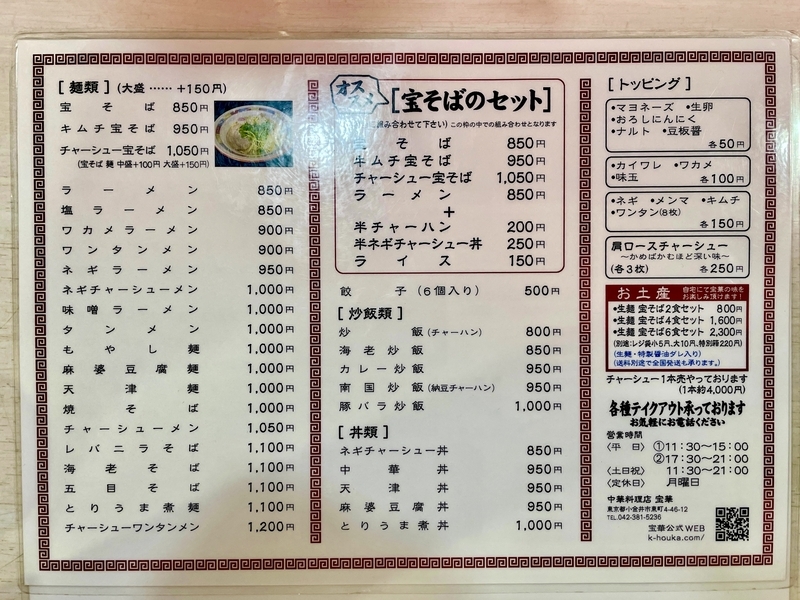 [ 麺類 ] (大盛 …… +150円)
宝そば 850円
キムチ宝そば 950円
チャーシュー宝そば 1,050円
(宝そば 麺 中盛+100円 大盛+150円)
ラーメン 850円
塩ラーメン 850円
ワカメラーメン 900円
ワンタンメン 900円
ネギラーメン 950円
ネギチャーシューメン 1,000円
味噌ラーメン 1,000円
タンメン 1,000円
もやし麺 1,000円
麻婆豆腐麺 1,000円
天津麺 1,000円
焼そば 1,000円
チャーシューメン 1,050円
レバニラそば 1,100円
海老そば 1,100円
五目そば 1,100円
とりうま煮麺 1,100円
チャーシューワンタンメン 1,200円
オススメ
[宝そばのセット]
み合わせて下さい) この枠の中での組み合わせとなります
宝そば 850円
キムチ宝そば 950円
チャーシュー宝そば 1,050円
ラーメン 850円
+
半チャーハン 200円
半ネギチャーシュー丼 250円
ライス 150円
餃子 (6個入り) 500円
[ 炒飯類 ]
炒飯 (チャーハン) 800円
海老炒飯 850円
カレー炒飯 950円
南国炒飯 (納豆チャーハン) 950円
豚バラ炒飯 1,000円
[ 丼類 ]
ネギチャーシュー丼 850円
中華丼 950円
天津丼 950円
麻婆豆腐丼 950円
とりうま煮丼 1,000円
[ トッピング ]
•マヨネーズ •生卵
•おろしにんにく
•ナルト •豆板醤
各50円
•カイワレ •ワカメ
•味玉 各100円
•ネギ •メンマ •キムチ
•ワンタン(8枚)
各150円
肩ロースチャーシュー
〜かめばかむほど深い味〜
(各3枚) 各250円
お土産 自宅にて宝華の味をお楽しみ頂けます!
•生麺 宝そば2食セット 800円
•生麺 宝そば4食セット 1,600円
•生麺 宝そば6食セット 2,300円
(別途:レジ袋小5円、大10円、特別箱220円)
(生麺・特製醤油ダレ入り)
(送料別途で全国発送も承ります。)
チャーシュー1本売やっております
(1本約4,000円)
各種テイクアウト承っております
お気軽にお電話ください
営業時間
〈平 日〉 ①11:30〜15:00
②17:30〜21:00
〈土日祝〉 11:30〜21:00
〈定休日〉 月曜日
中華料理店 宝華
東京都小金井市東町4-46-12
TEL.042-381-5236
宝華公式WEB
k-houka.com/